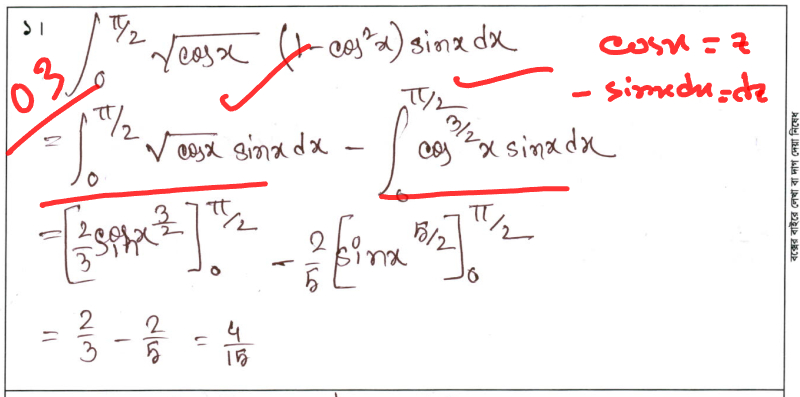 ১। ∫₀^{π/2} √cosx (1 - cos²x) sinx dx
cosx = z
03
- sinxdx = dz
= ∫₀^{π/2} √cosx sinx dx - ∫₀^{π/2} cos^{3/2}x sinx dx
= [2/3 x^{3/2}]₀^{π/2} - 2/5 [sinx^{5/2}]₀^{π/2}
= 2/3 - 2/5 = 4/15
বক্সের বাইরে লেখা বা দাগ দেয়া নিষেধ